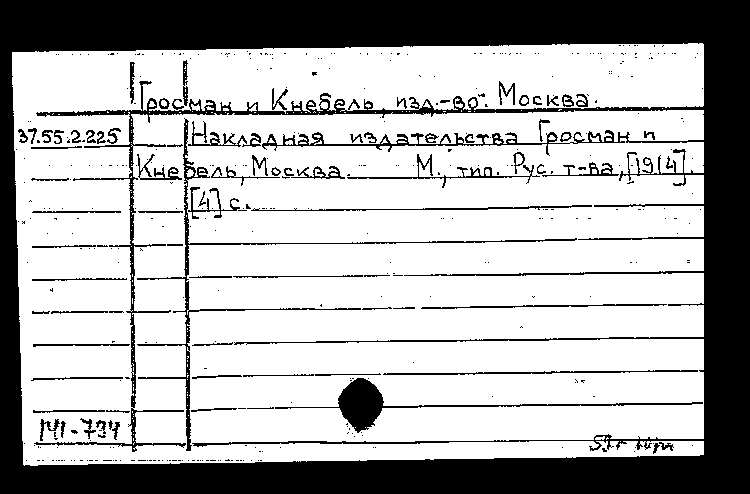 Гросман и Кнебель, изд-во. Москва.
37.55.2.225 Накладная издательства Гросман и
Кнебель, Москва. М., тип. Рус. т-ва, [1914].
[4] с.
141-734